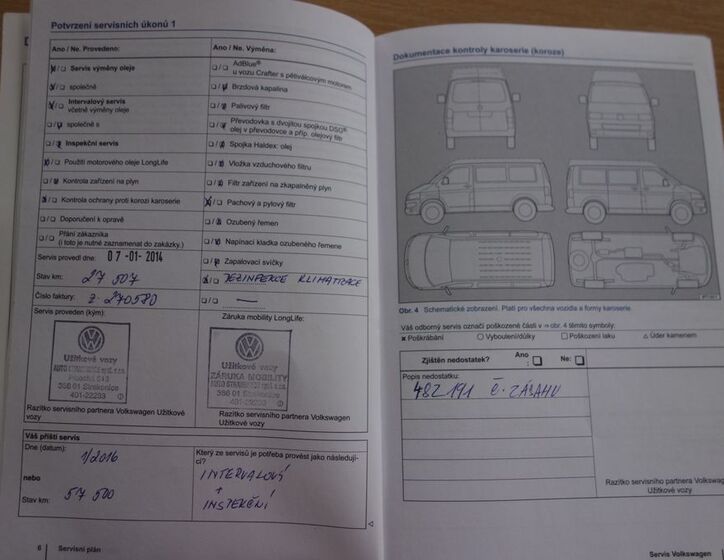 Potvrzení servisních úkonů 1
Ano / Ne. Provedeno:
☐/☐ Servis výměny oleje
☐/☐ společně
☐/☐ Intervalový servis
včetně výměny oleje
☐/☐ společně s
☐/☐ Inspekční servis
☐/☐ Použití motorového oleje LongLife
☐/☐ Kontrola zařízení na plyn
☐/☐ Kontrola ochrany proti korozi karoserie
☐/☐ Doporučení k opravě
☐/☐ Přání zákazníka
(i toto je nutné zaznamenat do zakázky.)
Servis provedl dne: 07 -01- 2014
Stav km: 27 507
Číslo faktury: 2-270580
Ano / Ne. Výměna:
☐/☐ AdBlue®
u vozu Crafter s pětiválcovým motorem
☐/☐ Brzdová kapalina
☐/☐ Palivový filtr
☐/☐ Převodovka s dvojitou spojkou DSG®
olej v převodovce a příp. olejový filtr
☐/☐ Spojka Haldex: olej
☐/☐ Vložka vzduchového filtru
☐/☐ Filtr zařízení na zkapalněný plyn
☐/☐ Pachový a pylový filtr
☐/☐ Ozubený řemen
☐/☐ Napínací kladka ozubeného řemene
☐/☐ Zapalovací svíčky
☐/☐ DEZINFEKCE KLIMATIZACE
☐/☐ —
Servis proveden (kým):
Užitkové vozy
386 01 Strakonice
401-22233
Razítko servisního partnera Volkswagen Užitkové
vozy
Záruka mobility LongLife:
Užitkové vozy
ZÁRUKA MOBILITY
386 01 Strakonice
401-22233
Razítko servisního partnera Volkswagen Užitkové
vozy
Váš příští servis
Dne (datum): 1/2016
nebo
Stav km: 57 500
Který ze servisů je potřeba provést jako následují-
cí?
INTERVALOVÝ
+
INSPEKČNÍ
6 Servisní plán
Dokumentace kontroly karoserie (koroze)
Obr. 4 Schematické zobrazení. Platí pro všechna vozidla a formy karoserie.
Váš odborný servis označí poškozené části v ⇒ obr. 4 těmito symboly.
✖ Poškrábání ○ Vyboulení/důlky ☐ Poškození laku △ Úder kamenem
Zjištěn nedostatek? Ano: ☐ Ne: ☐
Popis nedostatku:
48Z191 Č. ZÁSAHU
Razítko servisního partnera Volkswagen
Užitkové vozy
Servis Volkswagen